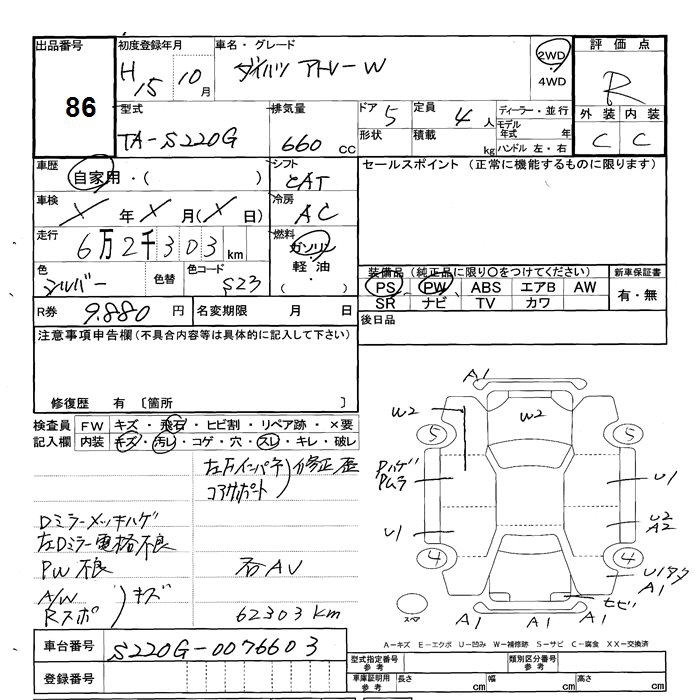 出品番号 初度登録年月 車名・グレード 評価点
86 H15 10月 ダイハツ アトレーW 2WD 4WD R
型式 排気量 ドア 定員 ディーラー・並行 外装 内装
TA-S220G 660cc 5 4人 モデル年式 年 C C
形状 積載 kg ハンドル 左・右
車歴 自家用・( ) シフト CAT セールスポイント (正常に機能するものに限ります)
車検 X年X月(X日) 冷房 AC
走行 6万2千303km 燃料 ガソリン 軽油 ( ・ )
色 シルバー 色替 色コード S23
装備品 (純正品に限り○をつけてください) 新車保証書
PS PW ABS エアB AW 有・無
SR ナビ TV カワ
R券 9.880円 名変期限 月 日 後日品
注意事項申告欄(不具合内容等は具体的に記入して下さい)
修復歴 有 〔箇所 〕
検査員記入欄 FW キズ・飛石・ヒビ割・リペア跡・×要
内装 キズ・汚レ・コゲ・穴・スレ・キレ・破レ
左Fインパネ)修正歪
コアサポート
Dミラーメッキハゲ
左Dミラー電格不良
PW不良 社AV
A/W )キズ
Rスポ
62303km
A1
W2 W2
5 5
Pハゲ
Pムラ U1
U1 U2
A2
4 4
U1タタ
A1
ヒビ
スペア A1 A1 A1
車台番号 S220G-0076603
登録番号
A-キズ E-エクボ U-凹み W-補修跡 S-サビ C-腐食 XX-交換済
型式指定番号 参考 類別区分番号 参考
車庫証明用 参考 長さ cm 幅 cm 高さ cm